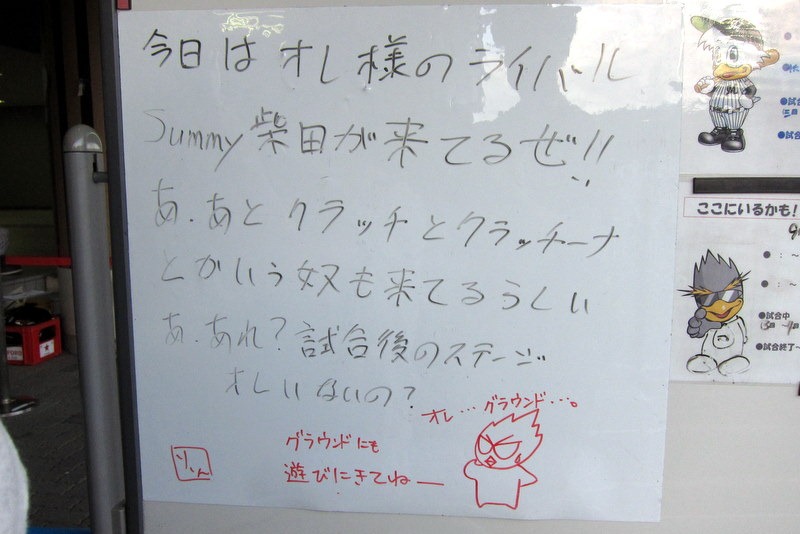 今日はオレ様のライバル
Summy柴田が来てるぜ!!
あ.あとクラッチとクラッチーナ
とかいう奴も来てるらしい
あ.あれ?試合後のステージ
オレいないの?
オレ…グラウンド…。
グラウンドにも
遊びにきてねー
りん
ここにいるかも!
●試合中
●試合終了~